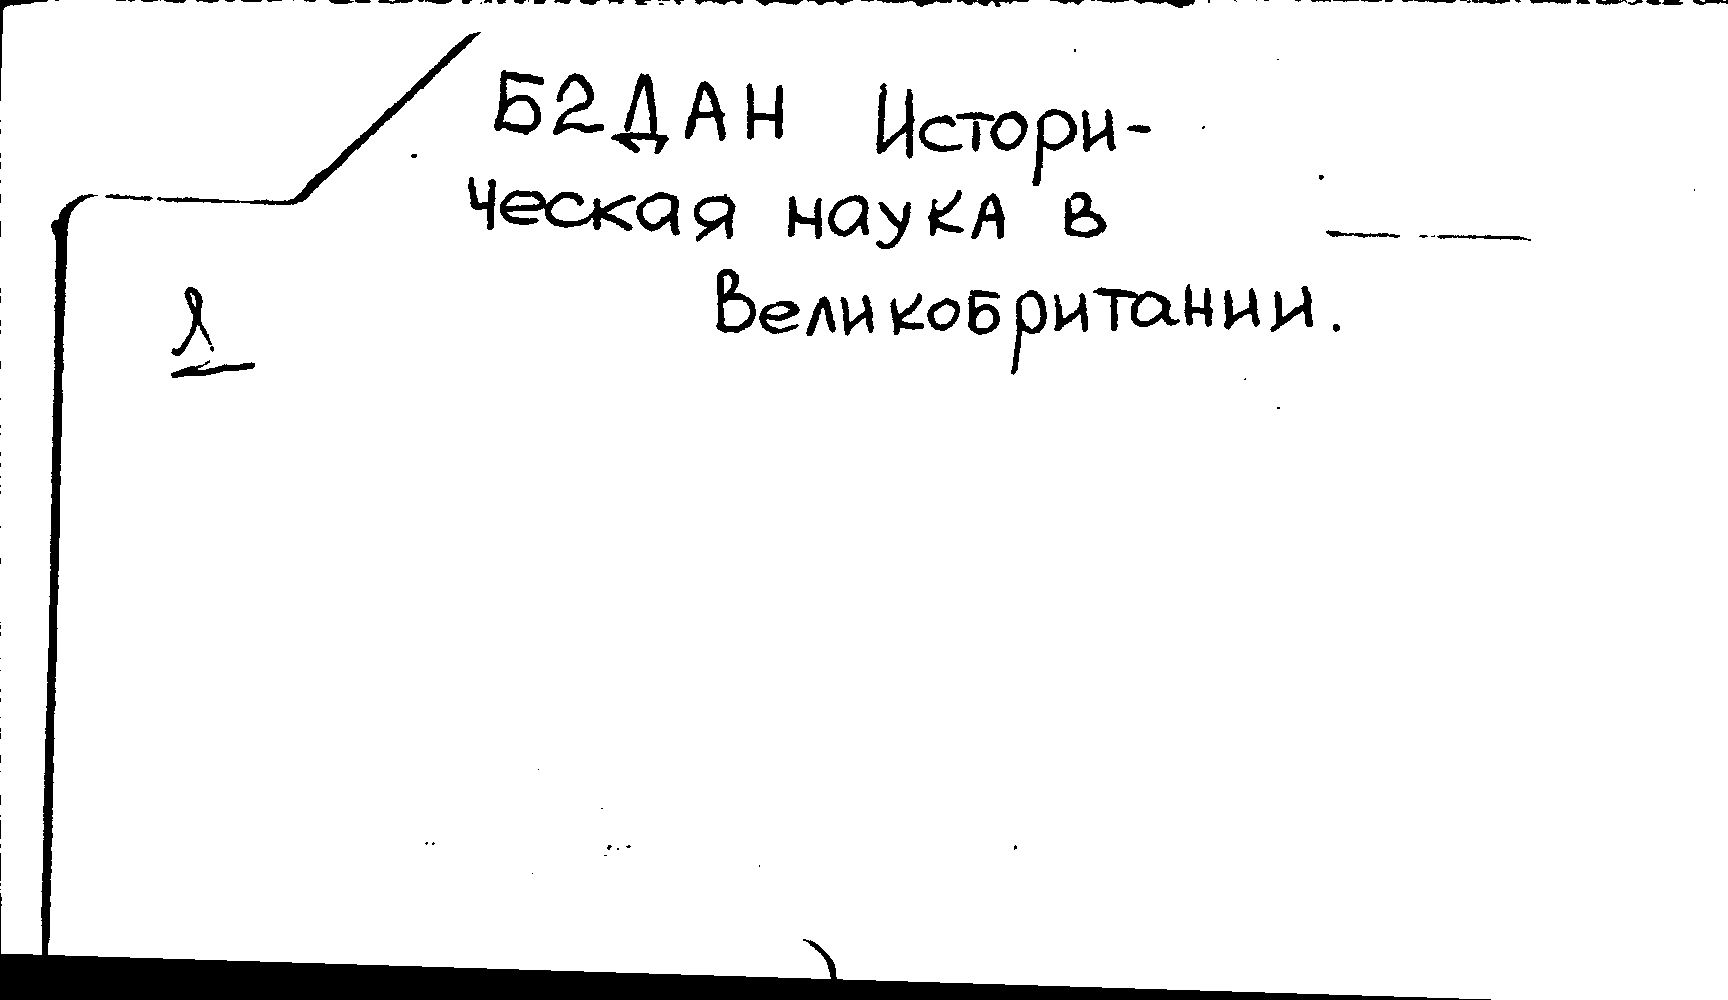 Б2ДАН Истори-
ческая наука в
Великобритании.